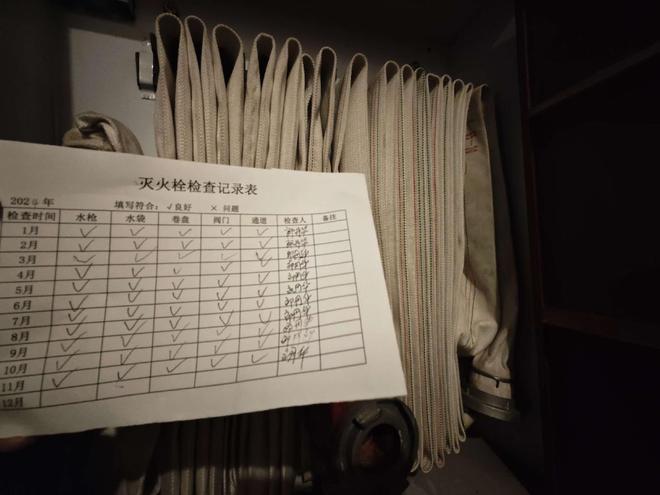 灭火栓检查记录表
2024年 填写符合：√良好 × 问题
检查时间 水枪 水袋 卷盘 阀门 通道 检查人 备注
1月 ✓ ✓ ✓ ✓ ✓
2月 ✓ ✓ ✓ ✓ ✓
3月 ✓ ✓ ✓ ✓ ✓
4月 ✓ ✓ ✓ ✓ ✓
5月 ✓ ✓ ✓ ✓ ✓
6月 ✓ ✓ ✓ ✓ ✓
7月 ✓ ✓ ✓ ✓ ✓
8月 ✓ ✓ ✓ ✓ ✓
9月 ✓ ✓ ✓ ✓ ✓
10月 ✓ ✓ ✓ ✓ ✓
11月 ✓ ✓ ✓ ✓ ✓
12月